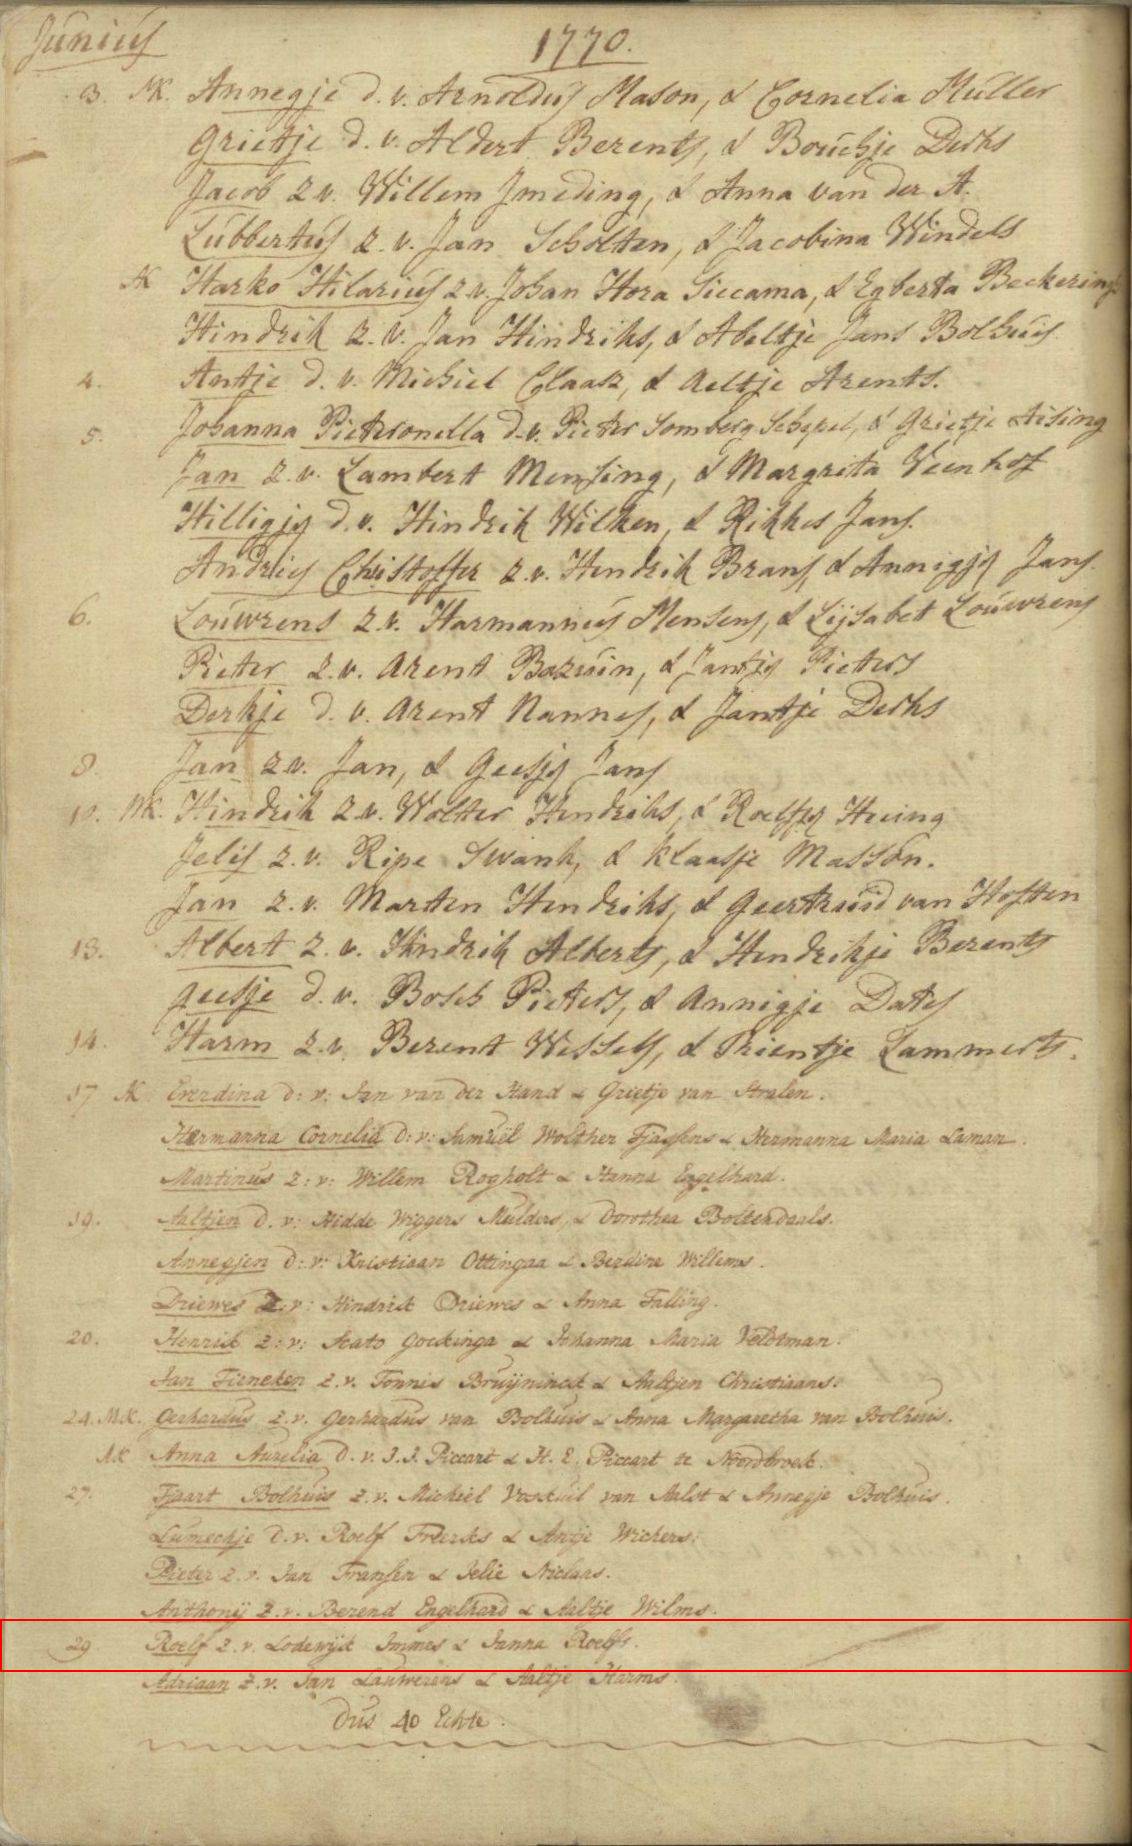 Junius 1770.
3. NK. Annegje d. v. Arnoldus Mason, & Cornelia Muller
Grietje d. v. Aldert Berents, & Bouchje Derks
Jacob z v. Willem Jmeding, & Anna van der A.
Lubbertus z. v. Jan Scholten, & Jacobina Windels
AK Harko Hilarius z v. Johan Hora Siccama, & Egberta Beckeringh
Hindrik z. v. Jan Hindriks, & Abeltje Jans Bolhuis
4. Antje d. v. Michiel Claasz, & Aeltje Arents.
5. Johanna Pieteronella d. v. Pieter Somberg Schepel, & Grietje Aising
Jan z. v. Lambert Mensing, & Margreta Veenhof
Hilligjy d. v. Hindrik Wilken, & Rikkes Jans.
Andries Christoffer z. v. Hendrik Brans, & Annigjy Jans.
6. Louwrens z. v. Harmannus Mensens, & Lijsabet Louwrens
Pieter z. v. Arent Bazuin, & Jantjy Pieters
Derkje d. v. Arent Nannes, & Jantje Derks
8. Jan z v. Jan, & Geesjy Jans
10. NK. Hindrik z v. Wolter Hendriks, & Roelfjy Huing
Jelis z. v. Ripe Swank, & Klaasje Masson.
Jan z. v. Marten Hendriks, & Geertruid van Hoften
13. Albert z. v. Hindrik Alberts, & Hendrikje Berents
geesje d. v. Bosch Pieters, & Annigje Dates
14. Harm z. v. Berent Wessels, & Trientje Lammerts.
17 AK Everdina d: v: Jan van der Hand & Grietje van Stralen.
Hermanna Cornelia d: v: Samuël Wolther Tjassens & Hermanna Maria Laman.
Martinus z: v: Willem Rogholt & Hanna Engelhard.
19. Aaltjen d. v: Hidde Wiggers Mulders, & Dorothea Bolterdaals.
Annegjen d: v: Kristiaan Ottingaa & Berdina Willems.
Driewes z. v: Hindrik Driewes & Anna Falling.
20. Henrik z: v: Scato Gockinga & Johanna Maria Veldtman.
Jan Tieneken z. v. Tonnis Bruijninck & Aaltjen Christiaans.
24. M.K. Gerhardus z. v. Gerhardus van Bolhuis & Anna Margaretha van Bolhuis.
AK Anna Aurelia d. v. J. J. Piccart & H. E. Piccart te Noordbroek.
27. Tjaart Bolhuis z. v. Michiel Voskuil van Aalst & Annegje Bolhuis.
Lumechje d. v. Roelf Freerks & Antje Wichers.
Pieter z. v. Jan Fransen & Jelie Niclaas.
Anthonij z. v. Berend Engelhard & Aaltje Wilms.
29. Roelf z. v. Lodewijk Immes & Janna Roelfs.
Adriaan z. v. Jan Lauwerens & Aaltje Harms.
Dus 40 Echte.